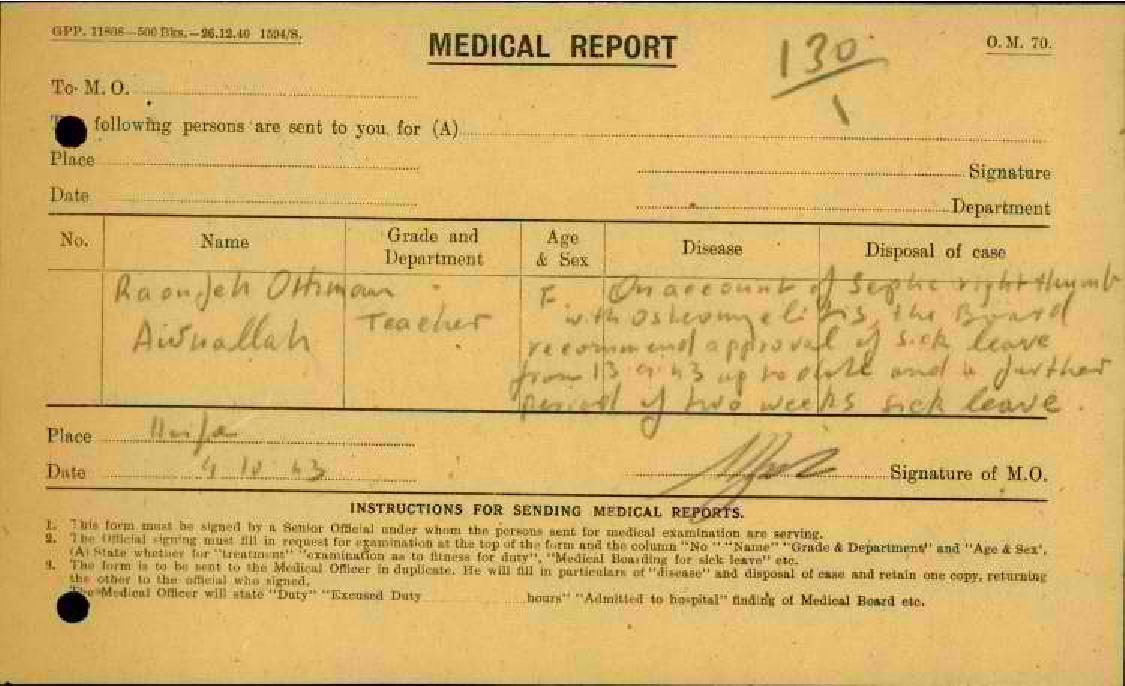 GPP. 11808—500 Bks.—26.12.40 1594/S.
MEDICAL REPORT
130
1
O. M. 70.
To M. O.
following persons are sent to you for (A)
Place
Signature
Date
Department
No. Name Grade and Department Age & Sex Disease Disposal of case
Othman Teacher F. On account of Septic right thumb
with osteomyelitis, the Board
recommend approval of sick leave
from 13 9 43 up to date and a further
period of two weeks sick leave.
Place Haifa
Date 4 10 43 Signature of M.O.
INSTRUCTIONS FOR SENDING MEDICAL REPORTS.
1. This form must be signed by a Senior Official under whom the persons sent for medical examination are serving.
2. The Official signing must fill in request for examination at the top of the form and the column "No" "Name" "Grade & Department" and "Age & Sex",
(A) State whether for "treatment" "examination as to fitness for duty", "Medical Boarding for sick leave" etc.
3. The form is to be sent to the Medical Officer in duplicate. He will fill in particulars of "disease" and disposal of case and retain one copy, returning
the other to the official who signed.
The Medical Officer will state "Duty" "Excused Duty hours" "Admitted to hospital" finding of Medical Board etc.